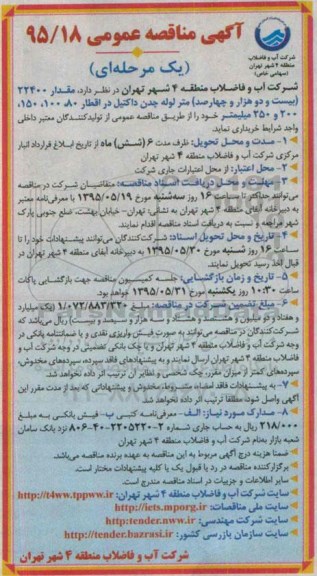 شرکت آب و فاضلاب
منطقه ۴ شهر تهران
(سهامی خاص)
آگهی مناقصه عمومی ۹۵/۱۸
(یک مرحله‌ای)
شرکت آب و فاضلاب منطقه ۴ شهر تهران در نظر دارد، مقدار ۲۲۴۰۰
(بیست و دو هزار و چهارصد) متر لوله چدن داکتیل در اقطار ۸۰، ۱۰۰، ۱۵۰،
۲۰۰ و ۲۵۰ میلیمتر خود را از طریق مناقصه عمومی از تولیدکنندگان معتبر داخلی
واجد شرایط خریداری نماید.
۱- مدت و محل تحویل: ظرف مدت ۶ (شش) ماه از تاریخ ابلاغ قرارداد انبار
مرکزی شرکت آب و فاضلاب منطقه ۴ شهر تهران
۲- محل اعتبار: از محل اعتبارات جاری شرکت
۳- مهلت و محل دریافت اسناد مناقصه: متقاضیان شرکت در مناقصه
می‌توانند حداکثر تا ساعت ۱۶ روز سه‌شنبه مورخ ۱۳۹۵/۰۵/۱۹ با معرفی‌نامه معتبر
به دبیرخانه آبفای منطقه ۴ شهر تهران به نشانی: تهران- خیابان بهشت، ضلع جنوبی پارک
شهر مراجعه و نسبت به دریافت اسناد مناقصه اقدام نمایند.
۴- تاریخ و محل تحویل اسناد: شرکت‌کنندگان می‌توانند پیشنهادات خود را تا
ساعت ۱۶ روز شنبه مورخ ۱۳۹۵/۰۵/۳۰ به دبیرخانه آبفای منطقه ۴ شهر تهران در
قبال اخذ رسید تحویل نمایند.
۵- تاریخ و زمان بازگشایی: جلسه کمیسیون مناقصه جهت بازگشایی پاکات
ساعت ۱۰:۳۰ روز یکشنبه مورخ ۱۳۹۵/۰۵/۳۱ خواهد بود.
۶- مبلغ تضمین شرکت در مناقصه: مبلغ ۱/۰۷۲/۸۸۲/۳۲۰ (یک میلیارد
و هفتاد و دو میلیون و هشتصد و هشتاد و دو هزار و سیصد و بیست) ریال می‌باشد که
شرکت‌کنندگان در مناقصه می‌توانند به صورت فیش واریزی نقدی و یا ضمانتنامه بانکی در
وجه شرکت آب و فاضلاب منطقه ۴ شهر تهران و یا چک بانکی تضمینی در وجه شرکت آب و
فاضلاب منطقه ۴ شهر تهران ارسال نمایند و به پیشنهادهای فاقد سپرده، سپرده‌های مخدوش،
سپرده‌های کمتر از میزان مقرر، چک شخصی و نظایر آن ترتیب اثر داده نخواهد شد.
۷- به پیشنهادات فاقد امضاء، مشروط، مخدوش و پیشنهاداتی که بعد از مدت مقرر این
آگهی واصل شود، مطلقا ترتیب اثر داده نخواهد شد.
۸- مدارک مورد نیاز: الف- معرفی‌نامه کتبی ب- فیش بانکی به مبلغ
۲۱۸/۰۰۰ ریال به حساب جاری شماره ۲-۲۲۰۵۲۲۰-۴۰-۸۰۶ نزد بانک سامان
شعبه بازار بنام شرکت آب و فاضلاب منطقه ۴ شهر تهران
ضمنا هزینه درج آگهی مربوط به این مناقصه به عهده برنده مناقصه می‌باشد.
برگزارکننده مناقصه در رد یا قبول یک یا کلیه پیشنهادات مختار است.
سایر اطلاعات و جزییات در اسناد مناقصه مندرج است.
سایت شرکت آب و فاضلاب منطقه ۴ شهر تهران: http://t4ww.tppww.ir
سایت ملی مناقصات: http://iets.mporg.ir
سایت شرکت مهندسی: http:tender.nww.ir
سایت سازمان بازرسی کشور: http://tender.bazrasi.ir
شرکت آب و فاضلاب منطقه ۴ شهر تهران